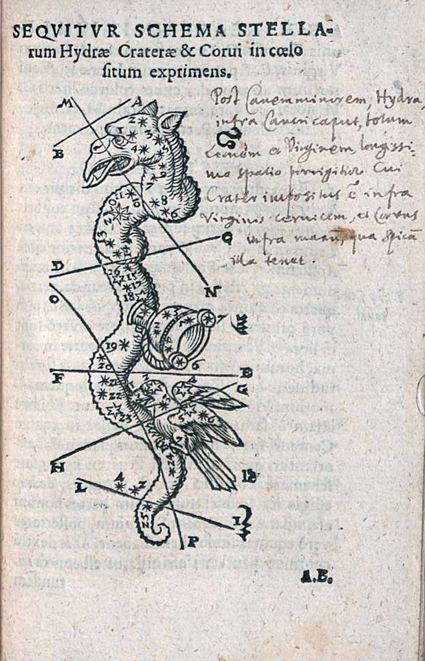 SEQVITVR SCHEMA STELLA-
rum Hydræ Crateræ & Corui in cœlo
situm exprimens.
Post Canem minorem, Hydra,
infra Cancri caput, totum
Leonem et Virginem, longissi-
mo spatio porrigitur Cui
Crater impositus ē infra
Virginis cervicem, et Corvus
infra manum, qua spicā
illa tenet.
M A
B
Q
D
O
N
F E
G
H
L
I
P
A.E.